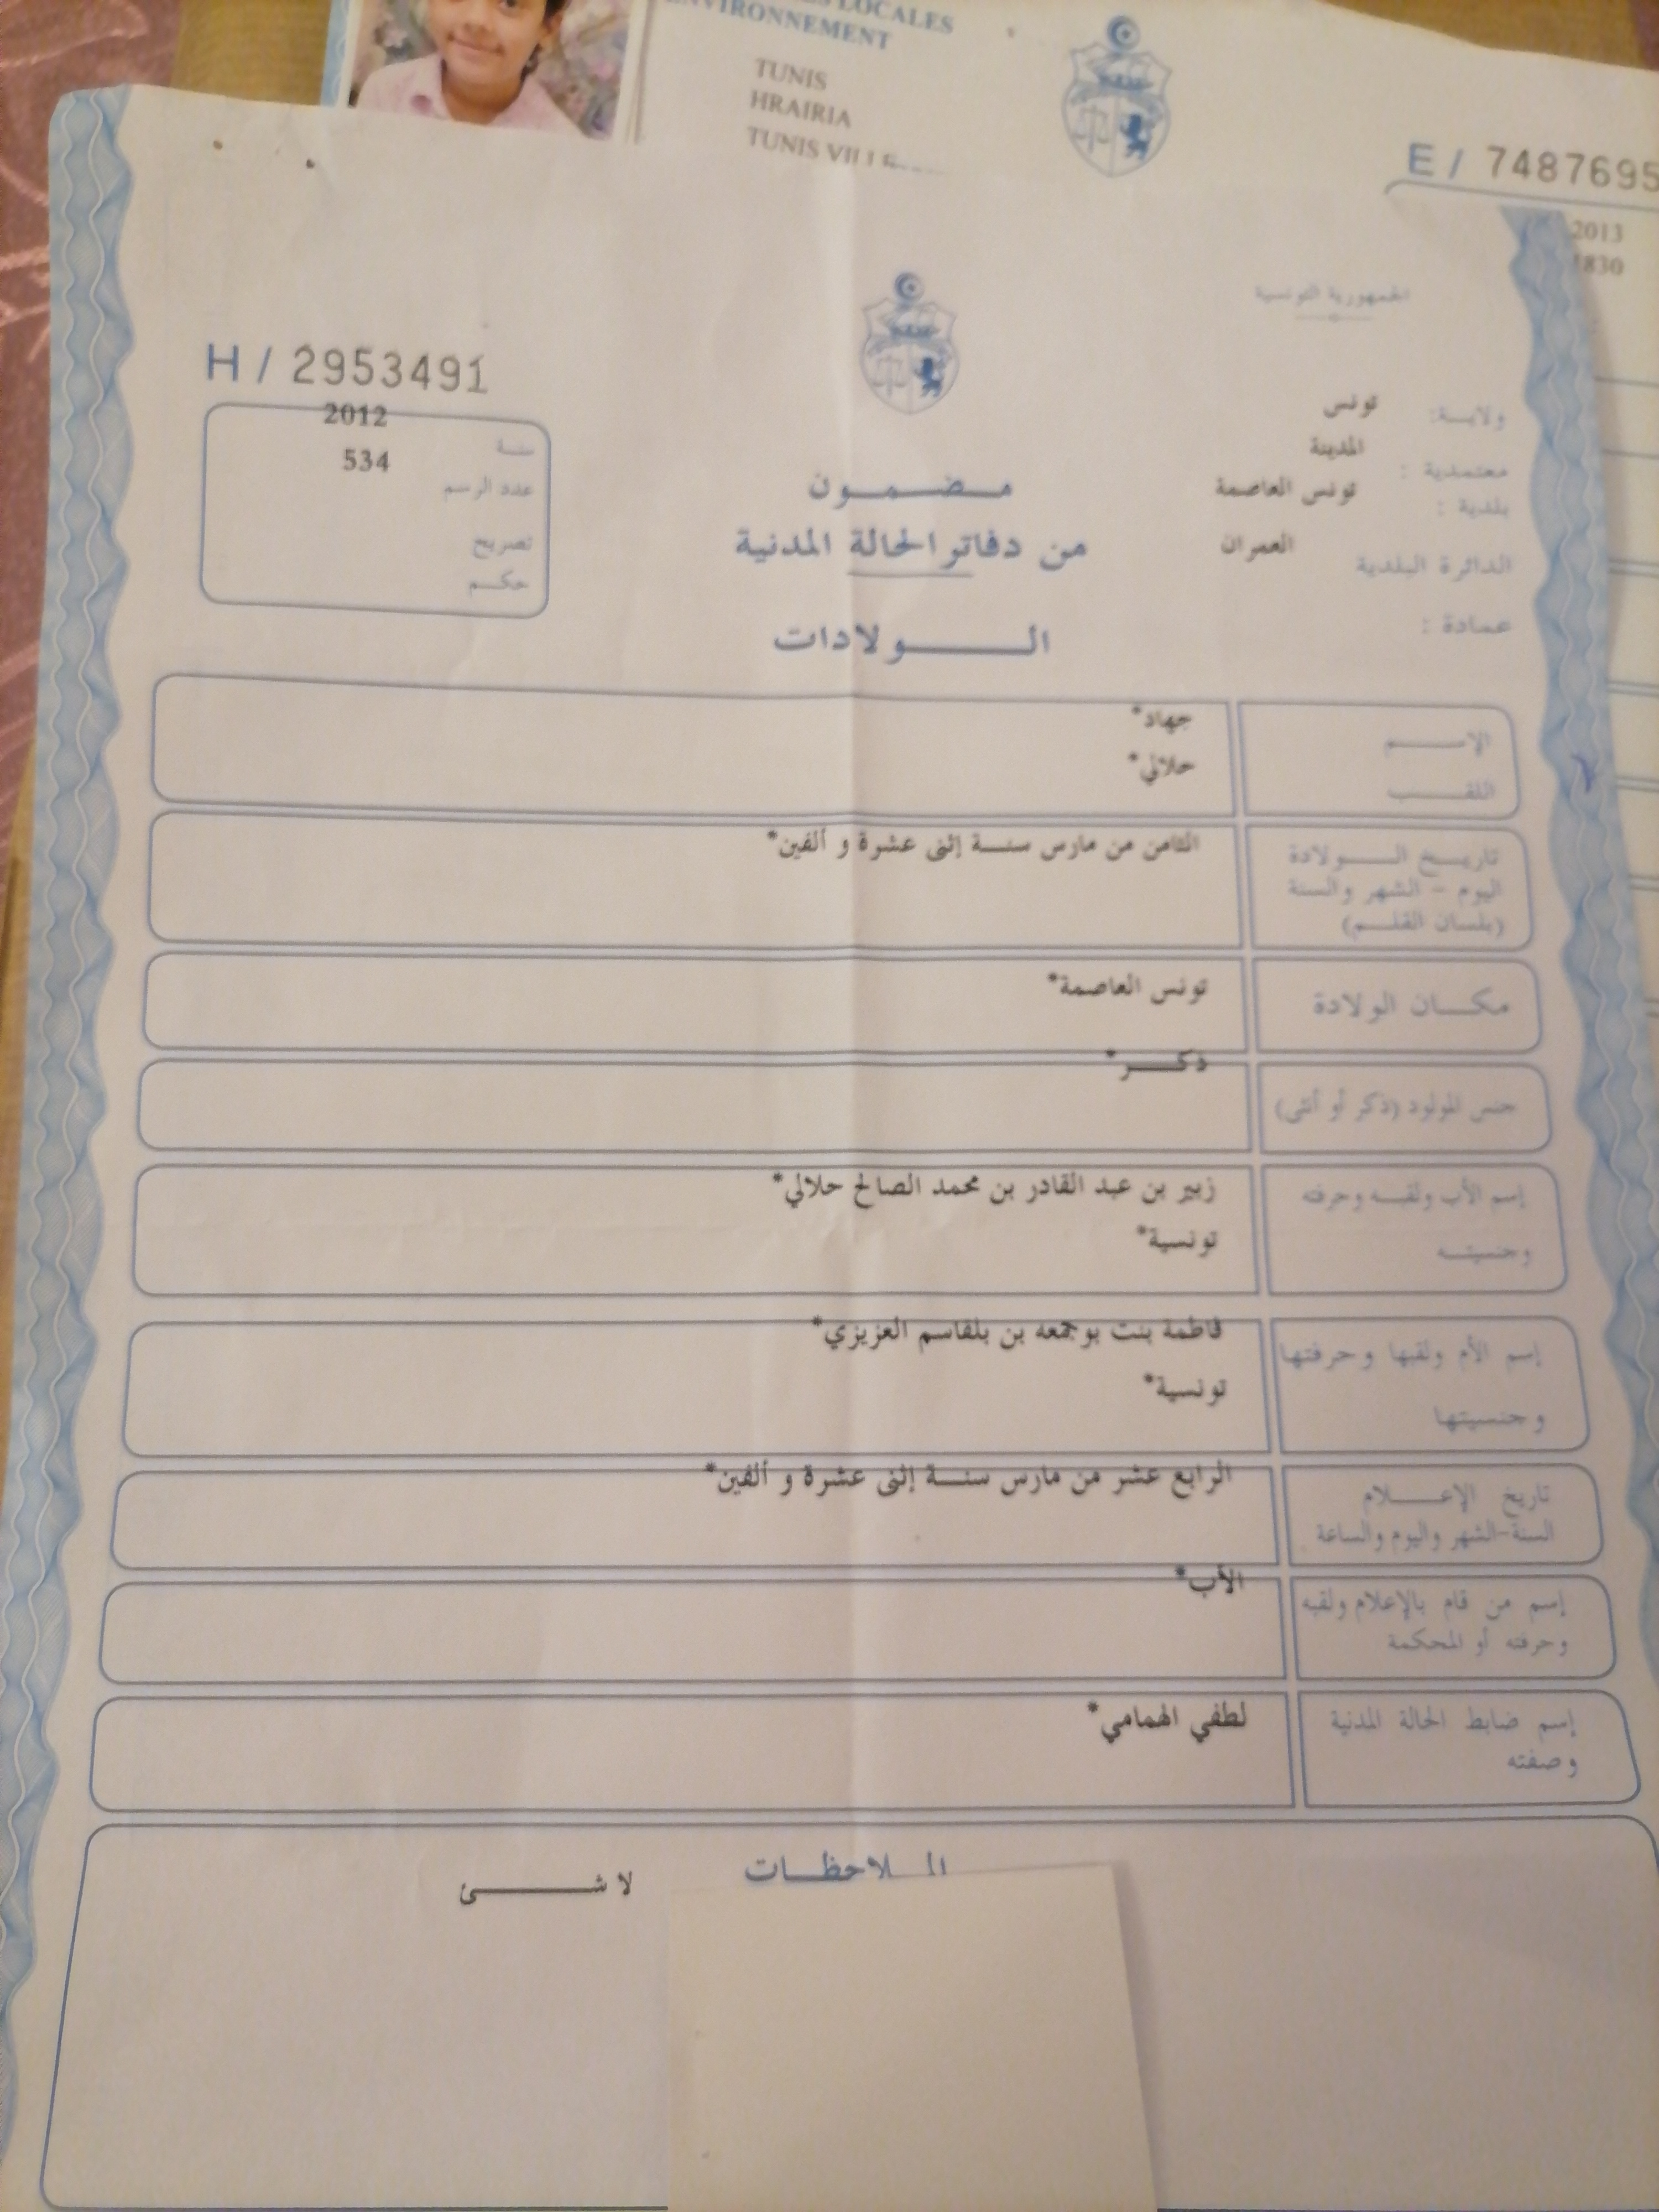 LOCALES
ENVIRONNEMENT
TUNIS
HRAIRIA
TUNIS
E / 7487695
2013
830
الجمهورية التونسية
H / 2953491
سنة 2012
عدد الرسم 534
تصريح
حكم
ولاية: تونس
معتمدية : المدينة
بلدية : تونس العاصمة
الدائرة البلدية العمران
عمادة :
مضمون
من دفاتر الحالة المدنية
الولادات
الإسم جهاد*
اللقب حلالي*
تاريخ الولادة الثامن من مارس سنة إثنى عشرة و ألفين*
اليوم - الشهر والسنة
(بلسان القلم)
مكان الولادة تونس العاصمة*
جنس المولود (ذكر أو أنثى) ذكر*
إسم الأب ولقبه وحرفته زبير بن عبد القادر بن محمد الصالح حلالي*
وجنسيته تونسية*
إسم الأم ولقبها وحرفتها فاطمة بنت بوجمعه بن بلقاسم العزيزي*
وجنسيتها تونسية*
تاريخ الإعلام الرابع عشر من مارس سنة إثنى عشرة و ألفين*
السنة-الشهر واليوم والساعة
إسم من قام بالإعلام ولقبه الأب*
وحرفته أو المحكمة
إسم ضابط الحالة المدنية لطفي الهمامي*
وصفته
الملاحظات
لا شئ